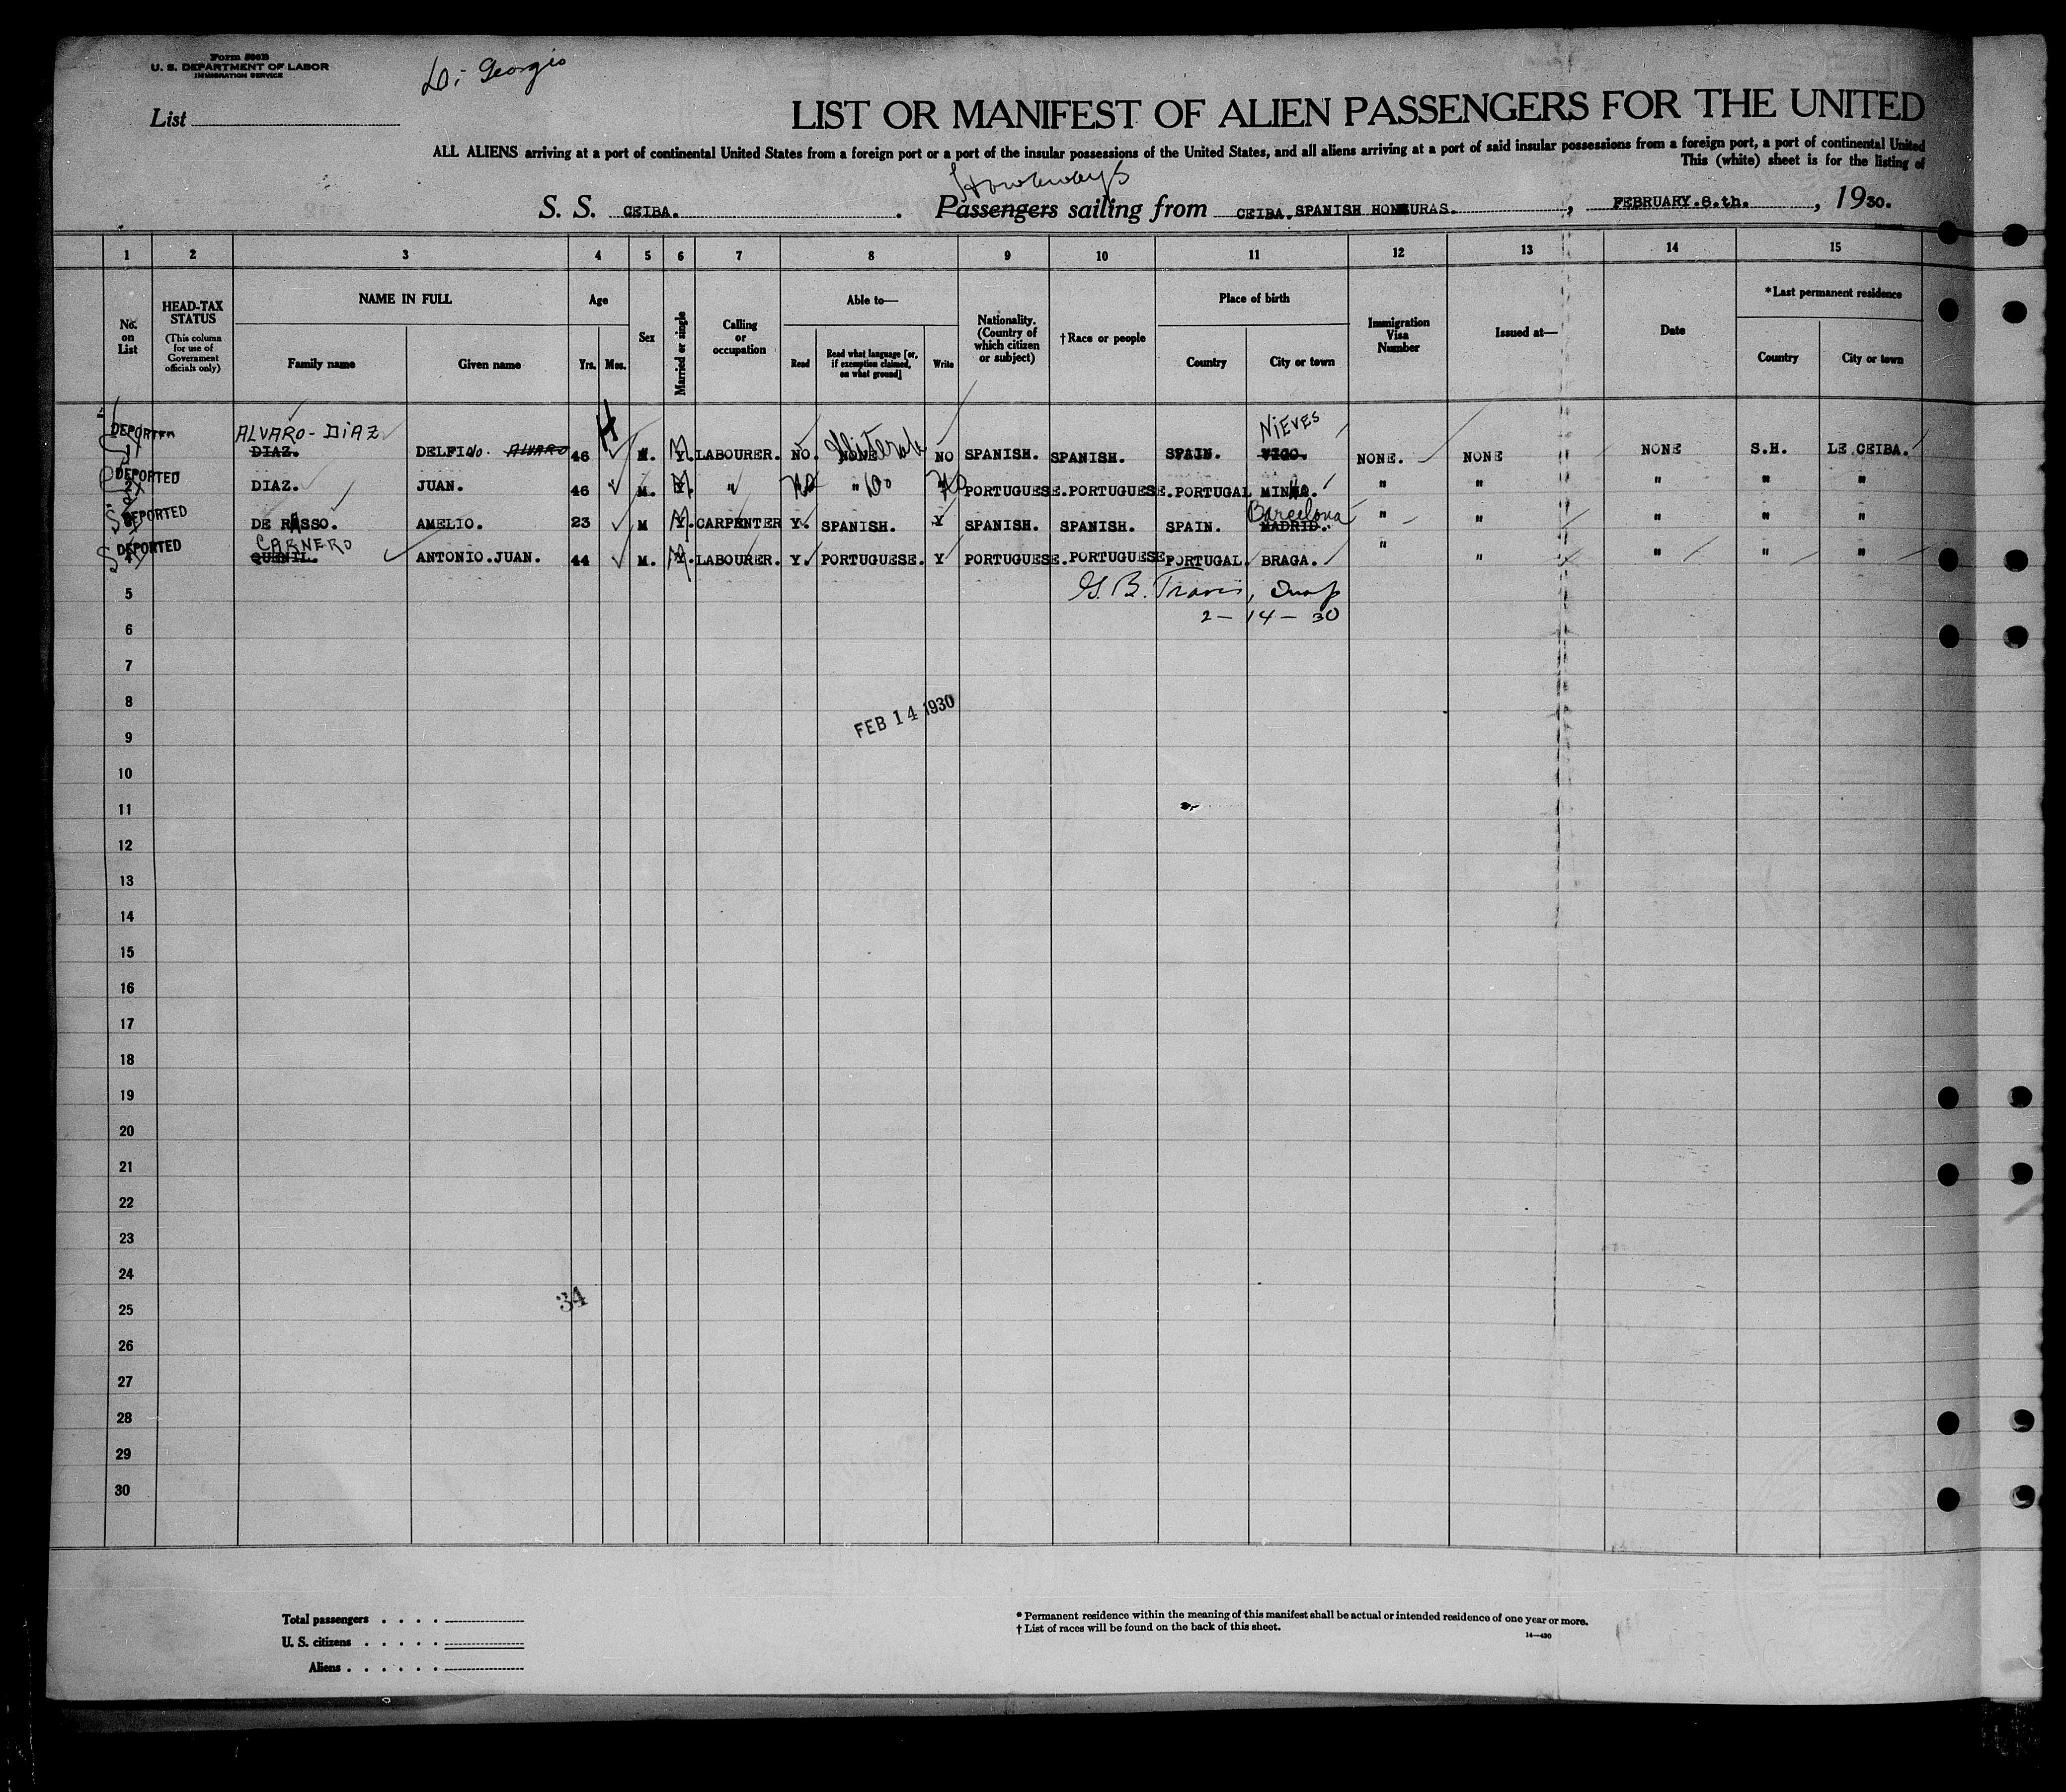 Form 500B
U. S. DEPARTMENT OF LABOR
IMMIGRATION SERVICE
Di Georgio
List
LIST OR MANIFEST OF ALIEN PASSENGERS FOR THE UNITED
ALL ALIENS arriving at a port of continental United States from a foreign port or a port of the insular possessions of the United States, and all aliens arriving at a port of said insular possessions from a foreign port, a port of continental United
This (white) sheet is for the listing of
Stowaways
S. S. CEIBA. Passengers sailing from CEIBA. SPANISH HONDURAS. , FEBRUARY.8.th. , 1930.
1 2 3 4 5 6 7 8 9 10 11 12 13 14 15
No. on List
HEAD-TAX STATUS
(This column for use of Government officials only)
NAME IN FULL
Family name
Given name
Age
Yrs. Mos.
Sex
Married or single
Calling or occupation
Able to—
Read
Read what language [or, if exemption claimed, on what ground]
Write
Nationality. (Country of which citizen or subject)
†Race or people
Place of birth
Country
City or town
Immigration Visa Number
Issued at—
Date
*Last permanent residence
Country
City or town
DEPORTED ALVARO-DIAZ NIEVES
1 DIAZ. DELFINO. ALVARO 46 M. M. LABOURER. NO. NONE NO SPANISH. SPANISH. SPAIN. VIGO. NONE. NONE NONE S.H. LE CEIBA.
DEPORTED
2 DIAZ. JUAN. 46 M. M. " No " Do No PORTUGUESE. PORTUGUESE. PORTUGAL MINHO. " " " " "
DEPORTED Barcelona
3 DE RASSO. AMELIO. 23 M M. CARPENTER Y. SPANISH. Y SPANISH. SPANISH. SPAIN. MADRID. " " " " "
DEPORTED CARNERO
4 ANTONIO.JUAN. 44 M. M. LABOURER. Y. PORTUGUESE. Y PORTUGUESE. PORTUGUESE. PORTUGAL. BRAGA. " " " " "
5 G. B. Travis, Insp
6 2-14-30
7
8 FEB 14 1930
9
10
11
12
13
14
15
16
17
18
19
20
21
22
23
24
25 34
26
27
28
29
30
Total passengers . . . .
U. S. citizens . . . . .
Aliens . . . . . .
* Permanent residence within the meaning of this manifest shall be actual or intended residence of one year or more.
† List of races will be found on the back of this sheet.
14—430